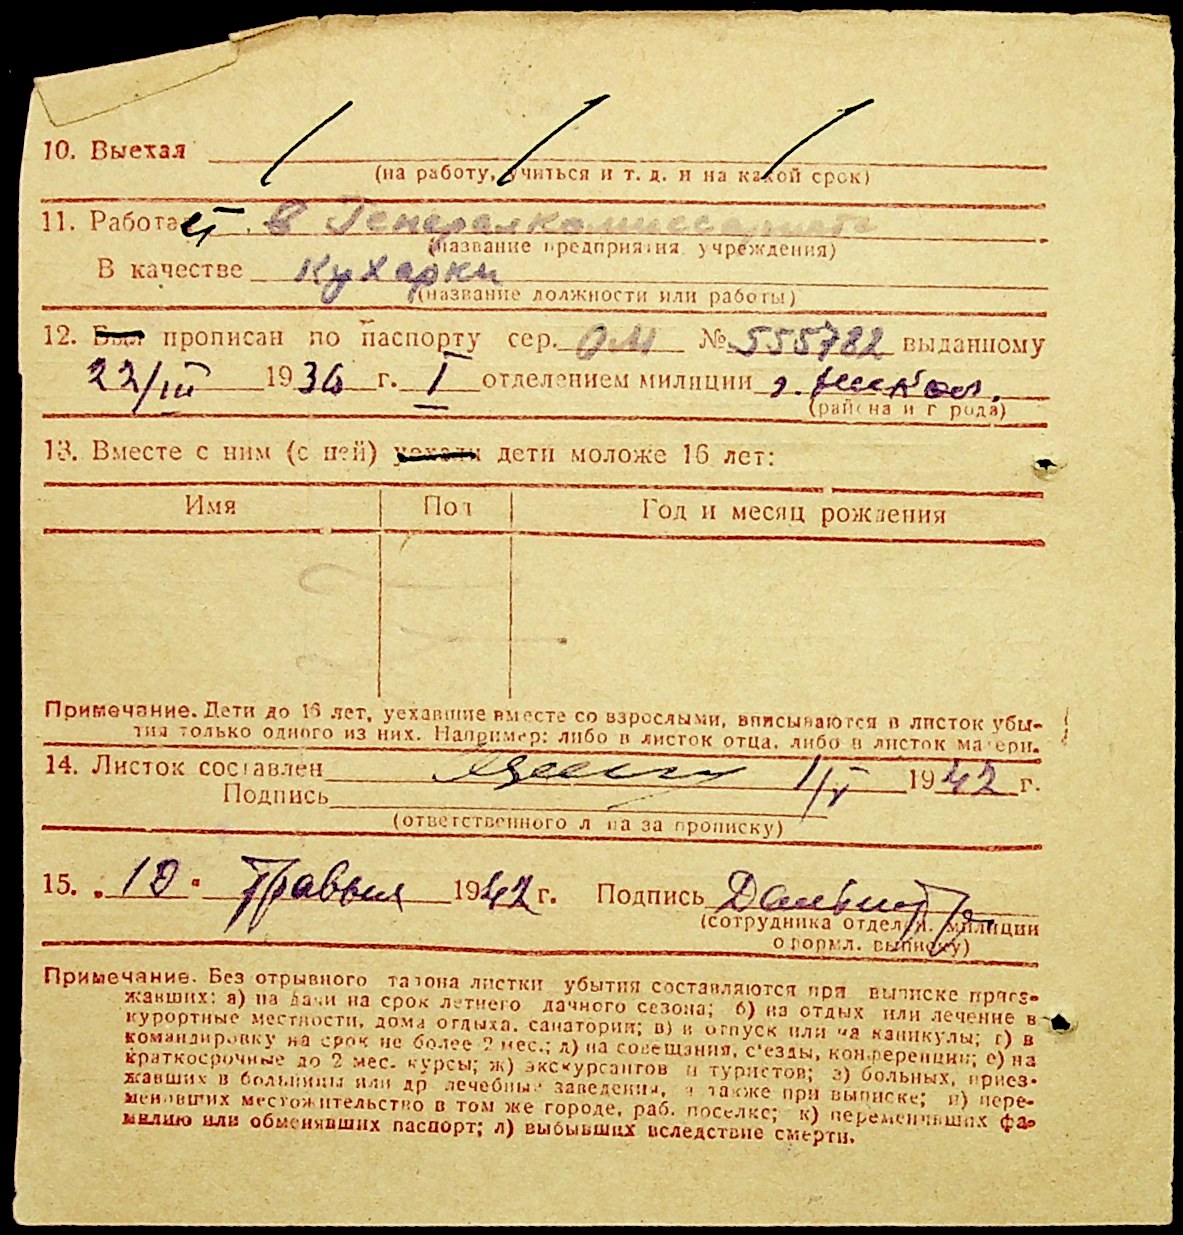 10. Выехал
(на работу, учиться и т. д. и на какой срок)
11. Работает в Генералкомиссариате
(название предприятия учреждения)
В качестве кухарки
(название должности или работы)
12. Был прописан по паспорту сер. ОМ № 555782 выданному
22/III 1936 г. I отделением милиции г. Никол.
(района и города)
13. Вместе с ним (с ней) уехали дети моложе 16 лет:
Имя Пол Год и месяц рождения
Примечание. Дети до 16 лет, уехавшие вместе со взрослыми, вписываются в листок убы-
тия только одного из них. Например: либо в листок отца, либо в листок матери.
14. Листок составлен 1/V 1942 г.
Подпись
(ответственного лица за прописку)
15. „10" травня 1942 г. Подпись
(сотрудника отдел. милиции
оформл. выписку)
Примечание. Без отрывного талона листки убытия составляются при выписке приез-
жавших: а) на дачи на срок летнего дачного сезона; б) на отдых или лечение в
курортные местности, дома отдыха, санатории; в) в отпуск или на каникулы; г) в
командировку на срок не более 2 мес.; д) на совещания, с'езды, конференции; е) на
краткосрочные до 2 мес. курсы; ж) экскурсантов и туристов; з) больных, приез-
жавших в больницы или др лечебные заведения, а также при выписке; и) пере-
менивших местожительство в том же городе, раб. поселке; к) переменивших фа-
милию или обменявших паспорт; л) выбывших вследствие смерти.